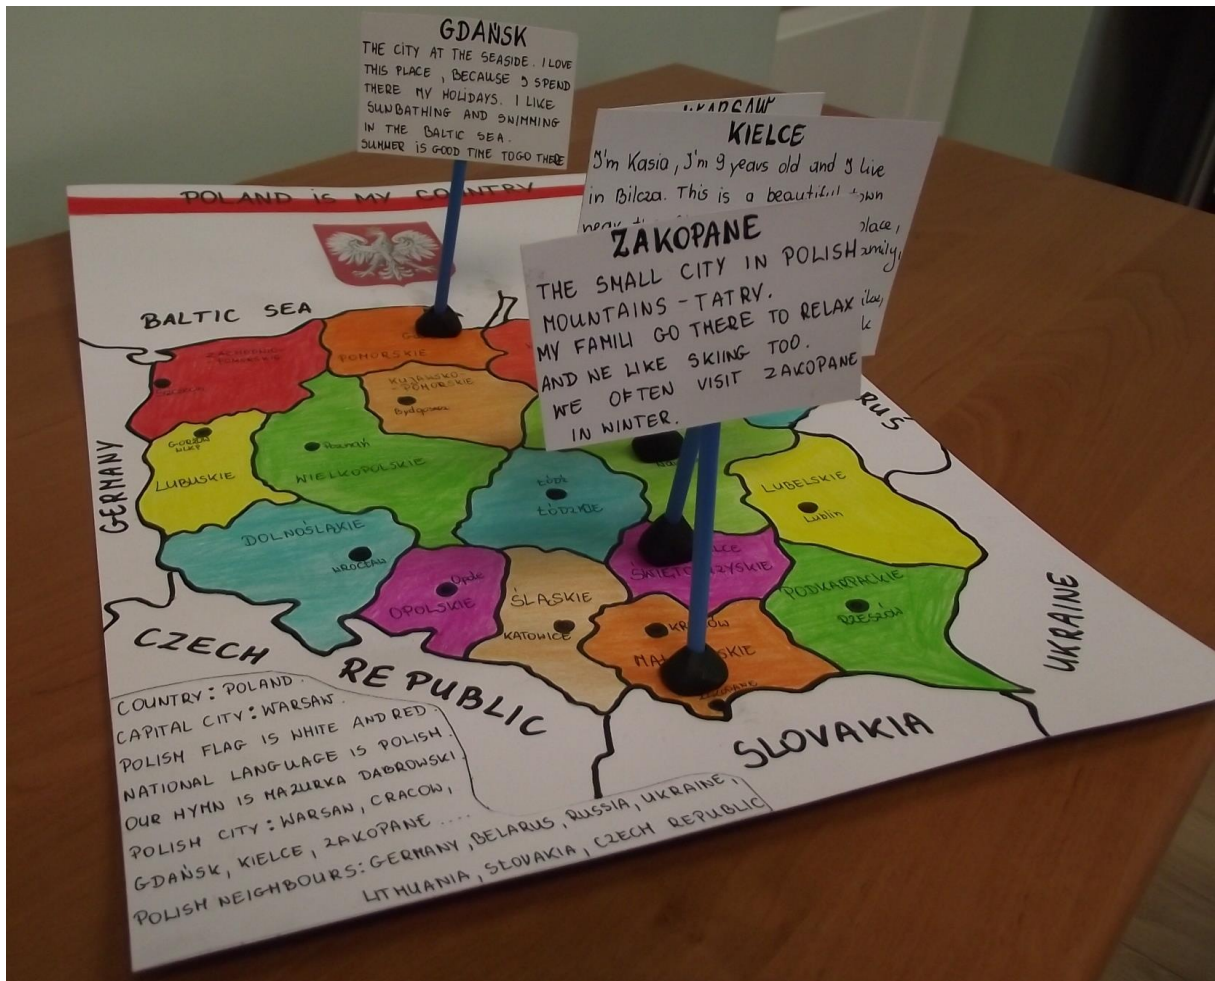 GDAŃSK
THE CITY AT THE SEASIDE. I LOVE
THIS PLACE, BECAUSE I SPEND
THERE MY HOLIDAYS. I LIKE
SUNBATHING AND SWIMMING
IN THE BALTIC SEA.
SUMMER IS GOOD TIME TO GO THERE
WARSAW
KIELCE
I'm Kasia, I'm 9 years old and I live
in Bilcza. This is a beautiful town
place,
family,
ZAKOPANE
THE SMALL CITY IN POLISH
MOUNTAINS - TATRY.
MY FAMILI GO THERE TO RELAX
AND WE LIKE SKIING TOO.
WE OFTEN VISIT ZAKOPANE
IN WINTER.
POLAND iS MY COUNTRY
BALTIC SEA
ZACHODNIO-
-POMORSKIE
POMORSKIE
KUJAWSKO-
-POMORSKIE
Bydgoszcz
GORZÓW
WLKP
LUBUSKIE
Poznań
WIELKOPOLSKIE
Łódź
ŁÓDZKIE
LUBELSKIE
Lublin
DOLNOŚLĄKIE
WROCŁAW
Opole
OPOLSKIE
ŚLĄSKIE
KATOWICE
PODKARPACKIE
RZESZÓW
ZAKOPANE
GERMANY
CZECH REPUBLIC
SLOVAKIA
UKRAINE
COUNTRY: POLAND.
CAPITAL CITY: WARSAW.
POLISH FLAG IS WHITE AND RED.
NATIONAL LANGUAGE IS POLISH.
OUR HYMN IS MAZURKA DABROWSKI.
POLISH CITY: WARSAW, CRACOW,
GDAŃSK, KIELCE, ZAKOPANE ....
POLISH NEIGHBOURS: GERMANY, BELARUS, RUSSIA, UKRAINE,
LITHUANIA, SŁOVAKIA, CZECH REPUBLIC